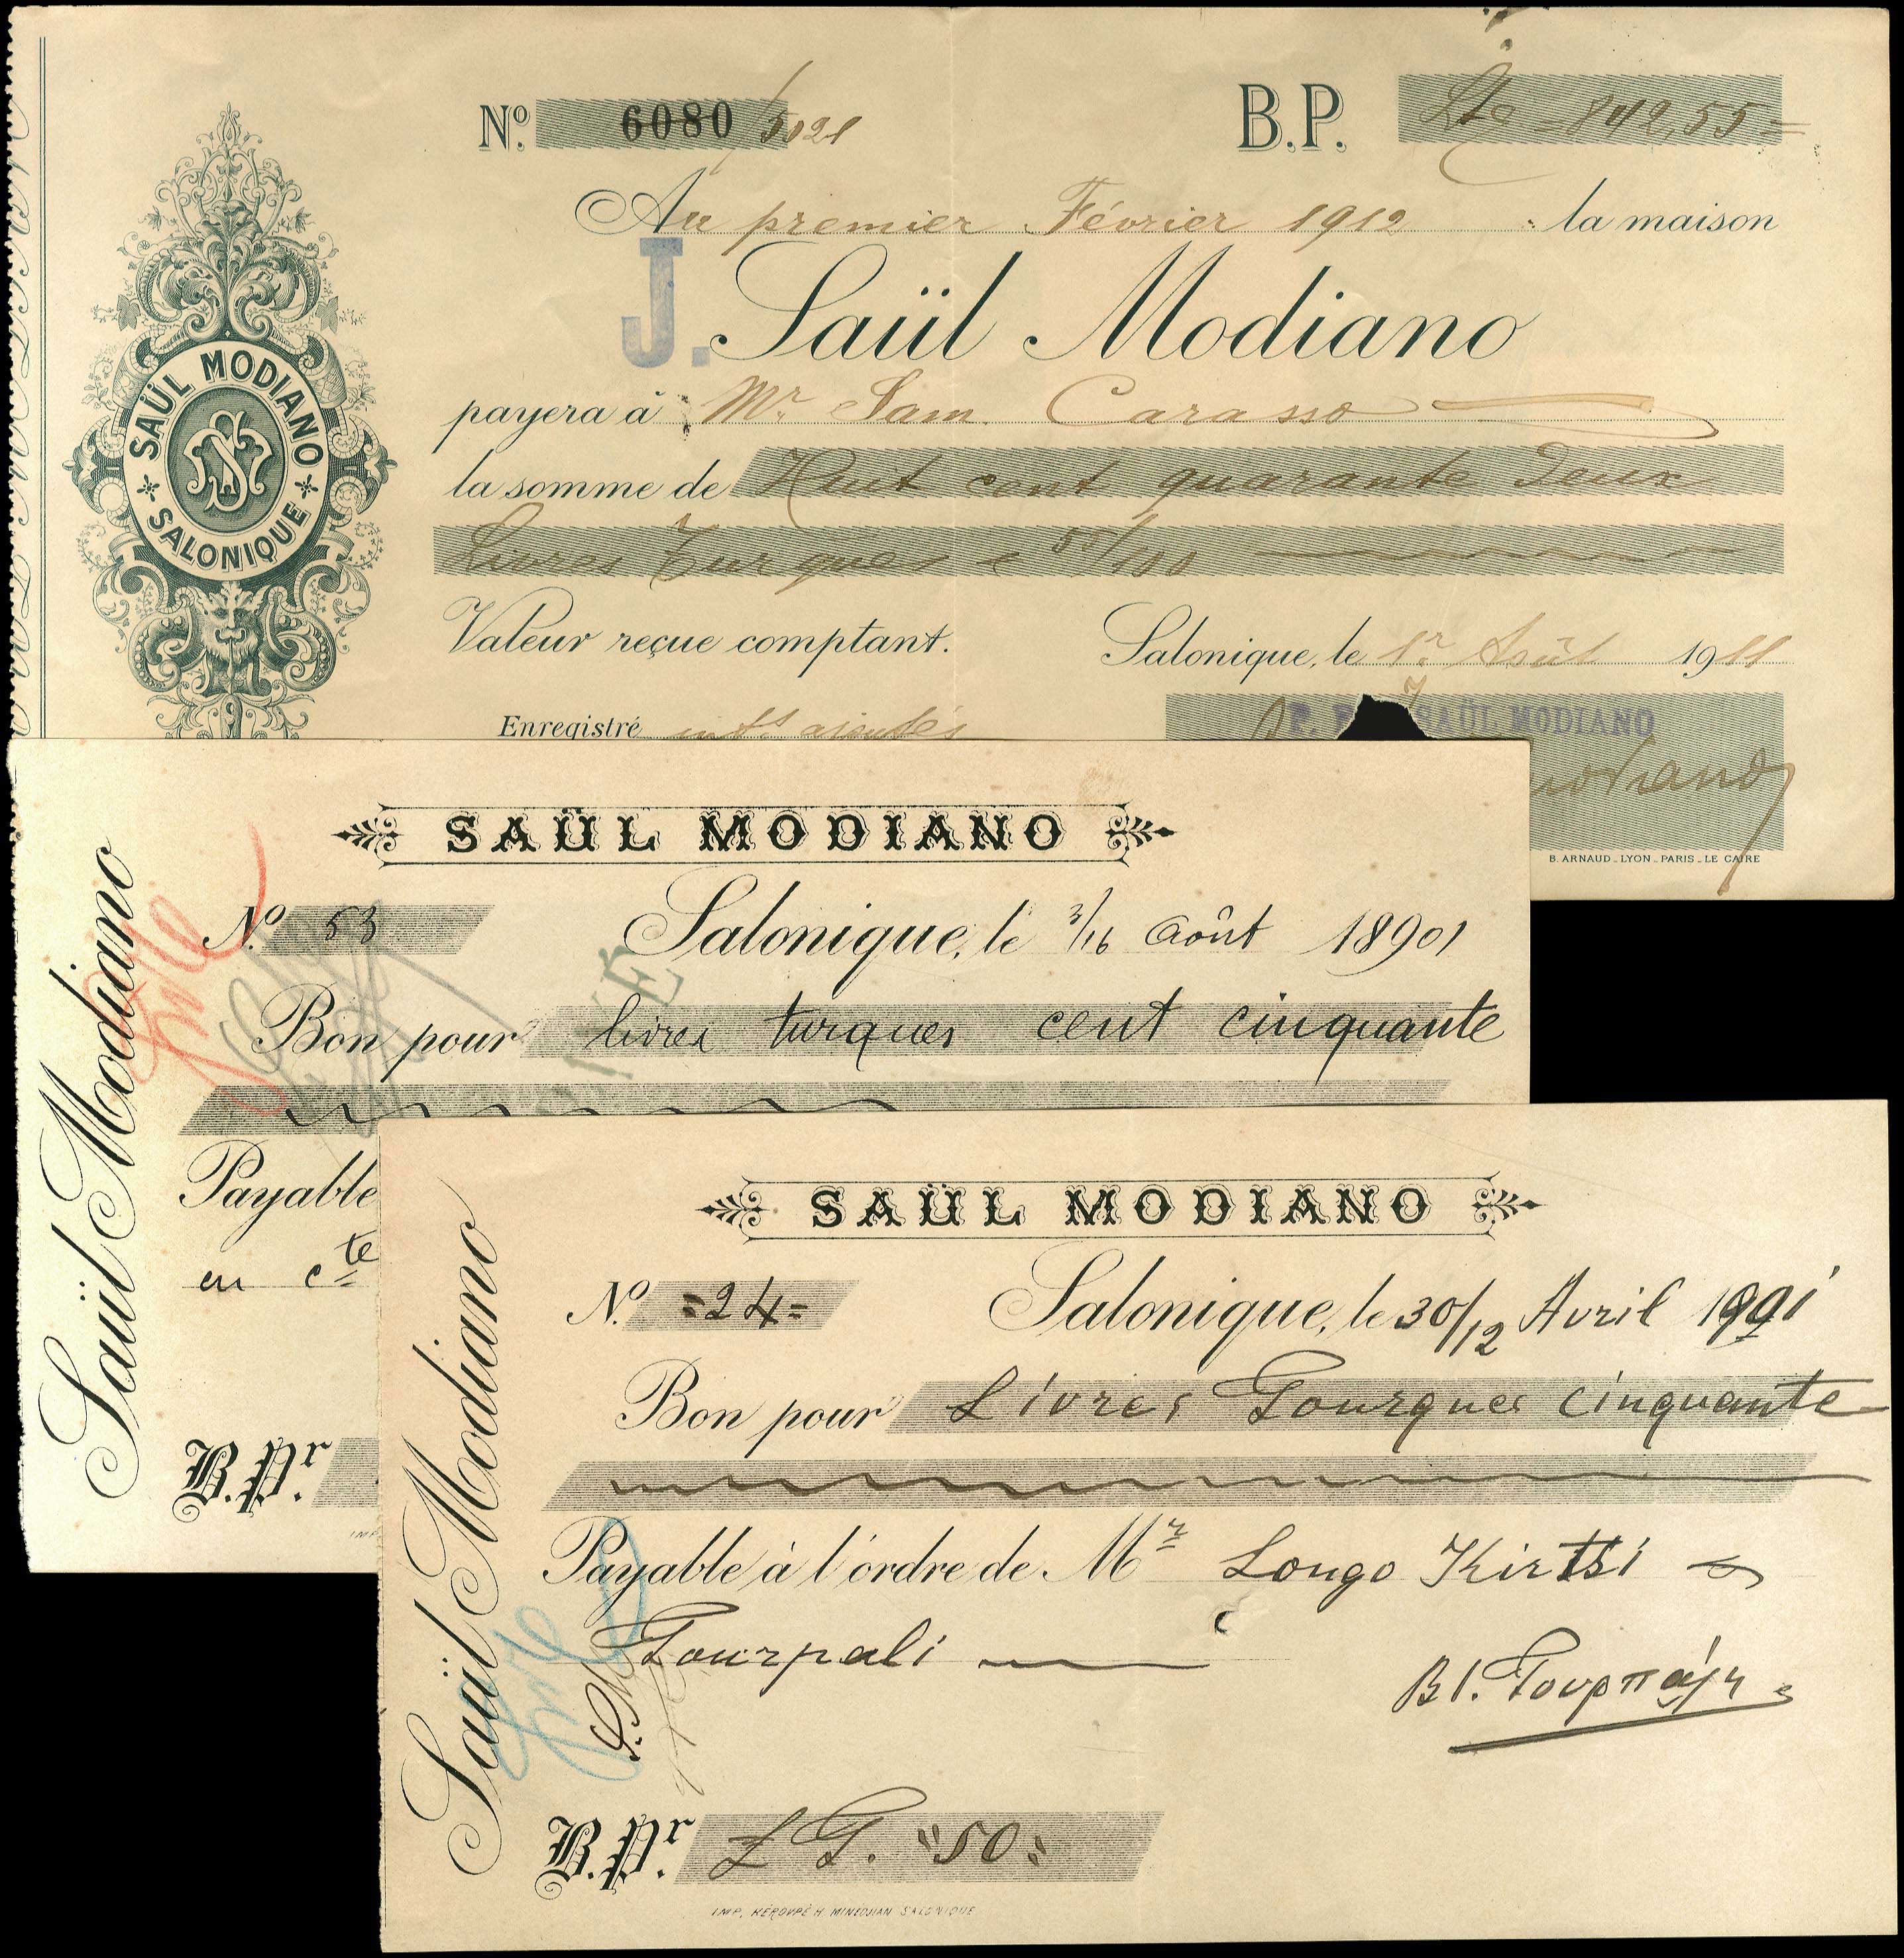 Nº 6080 / 5021
B.P. Ltq = 842,55 =
Au premier Février 1912 la maison
J. Saül Modiano
payera à Mr Sam. Carasso
la somme de Huit cent quarante Deux
Livres Turques & 55/100
Valeur reçue comptant.
Salonique, le 1r Août 1911
Enregistré intts ajoutés
SAÜL MODIANO
SALONIQUE
SAÜL MODIANO
B. ARNAUD - LYON - PARIS - LE CAIRE
Saül Modiano
SAÜL MODIANO
Nº 53
Salonique, le 3/16 Août 18901
Bon pour livres turques cent cinquante
Payable
en cte
B.Pr.
IMP.
Saül Modiano
SAÜL MODIANO
Nº =24=
Salonique, le 30/12 Avril 1901
Bon pour Livres Tourques cinquante
Payable à l'ordre de Mr Longo Kirtsi
Tourpali
Βλ. Τουρπάλη
B.Pr. £ T. "50"
IMP. KÉROVPÉ H. MINEDJIAN SALONIQUE